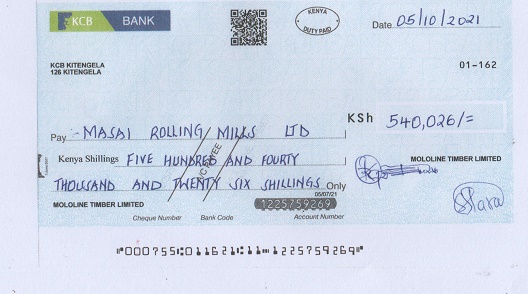 KCB BANK
KENYA
DUTY PAID
Date 05/10/2021
KCB KITENGELA
126 KITENGELA
01-162
Pay :- MASAI ROLLING MILLS LTD
KSh 540,026/=
A/C PAYEE
Kenya Shillings FIVE HUNDRED AND FOURTY
THOUSAND AND TWENTY SIX SHILLINGS Only
MOLOLINE TIMBER LIMITED
05/07/21
MOLOLINE TIMBER LIMITED
1225759269
Cheque Number Bank Code Account Number
⑈000755⑆01162⑆11⑉1225759269⑈